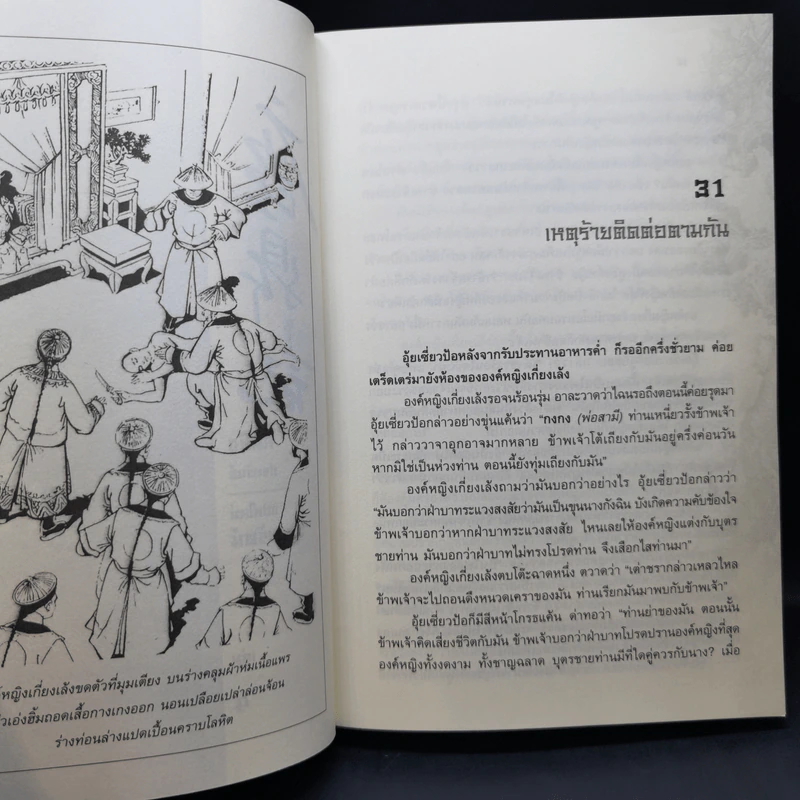 หญิงเกี่ยงเล้งขดตัวที่มุมเตียง บนร่างคลุมผ้าห่มเนื้อแพร
เอ่งฮิ้มถอดเสื้อกางเกงออก นอนเปลือยเปล่าล่อนจ้อน
ร่างท่อนล่างแปดเปื้อนคราบโลหิต
31
เหตุร้ายติดต่อตามกัน
อุ้ยเซี่ยวป้อหลังจากรับประทานอาหารค่ำ ก็รออีกครึ่งชั่วยาม ค่อย
เตร็ดเตร่มายังห้องขององค์หญิงเกี่ยงเล้ง
องค์หญิงเกี่ยงเล้งรอจนร้อนรุ่ม อาละวาดว่าไฉนรอถึงตอนนี้ค่อยรุดมา
อุ้ยเซี่ยวป้อกล่าวอย่างขุ่นแค้นว่า “กงกง (พ่อสามี) ท่านเหนี่ยวรั้งข้าพเจ้า
ไว้ กล่าววาจาอุกอาจมากหลาย ข้าพเจ้าโต้เถียงกับมันอยู่ครึ่งค่อนวัน
หากมิใช่เป็นห่วงท่าน ตอนนี้ยังทุ่มเถียงกับมัน”
องค์หญิงเกี่ยงเล้งถามว่ามันบอกว่าอย่างไร อุ้ยเซี่ยวป้อกล่าวว่า
“มันบอกว่าฝ่าบาทระแวงสงสัยว่ามันเป็นขุนนางกังฉิน บังเกิดความคับข้องใจ
ข้าพเจ้าบอกว่าหากฝ่าบาทระแวงสงสัย ไหนเลยให้องค์หญิงแต่งกับบุตร
ชายท่าน มันบอกว่าฝ่าบาทไม่ทรงโปรดท่าน จึงเสือกไสท่านมา”
องค์หญิงเกี่ยงเล้งตบโต๊ะฉาดหนึ่ง ตวาดว่า “เต่าชรากล่าวเหลวไหล
ข้าพเจ้าจะไปถอนดึงหนวดเคราของมัน ท่านเรียกมันมาพบกับข้าพเจ้า”
อุ้ยเซี่ยวป้อก็มีสีหน้าโกรธแค้น ด่าทอว่า “ท่านย่าของมัน ตอนนั้น
ข้าพเจ้าคิดเสี่ยงชีวิตกับมัน ข้าพเจ้าบอกว่าฝ่าบาทโปรดปรานองค์หญิงที่สุด
องค์หญิงทั้งงดงาม ทั้งชาญฉลาด บุตรชายท่านมีที่ใดคู่ควรกับนาง? เมื่อ